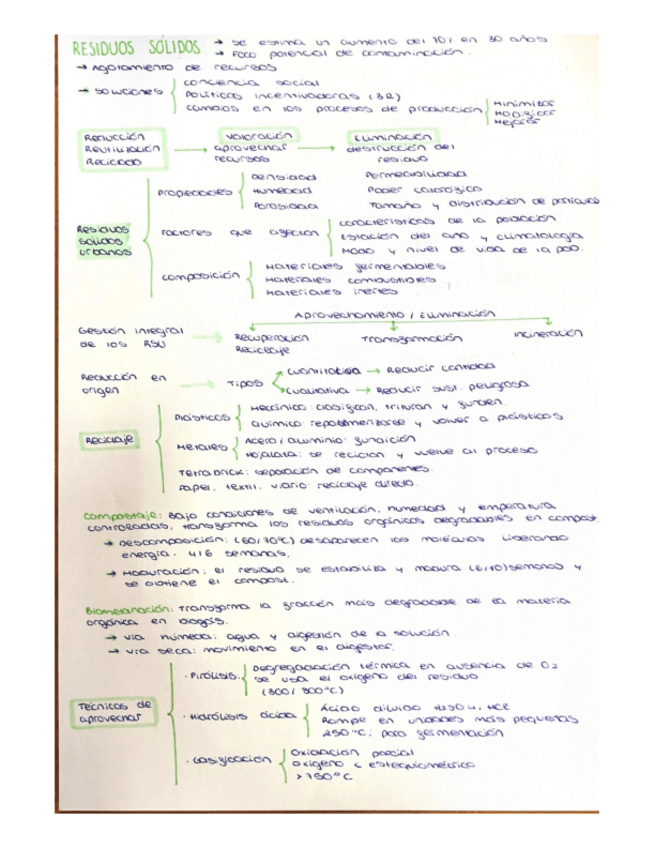 RESIDUOS SÓLIDOS → se estima un aumento del 70% en 30 años.
→ Foco potencial de contaminación.
→ Agotamiento de recursos
→ Soluciones
conciencia social
Políticas incentivadoras (3R)
cambios en los procesos de producción
Minimizar
Modificar
Mejorar
Reducción
Reutilización
Reciclado
→ Valoración
aprovechar
recursos
→ Eliminación
destrucción del
residuo
Residuos
sólidos
urbanos
Propiedades
Densidad
Humedad
Porosidad
Permeabilidad
Poder calorífico
Tamaño y distribución de partículas
Factores que afectan
características de la población
Estación del año y climatología
Modo y nivel de vida de la pob.
Composición
Materiales fermentables
Materiales combustibles
Materiales inertes
Aprovechamiento / Eliminación
Gestión integral
de los RSU
→ Recuperación
Reciclaje
Transformación
Incineración
Reducción en
origen
→ Tipos
cuantitativa → Reducir cantidad
cualitativa → Reducir sust. peligrosa
Reciclaje
Plásticos
Mecánico: clasifican, trituran y funden.
Químico: repolimerizarse y volver a plásticos
Metales
Acero/aluminio: fundición
Hojalata: se reciclan y vuelve al proceso
Tetrabrick: separación de componentes.
Papel, textil, vidrio: reciclaje directo.
Compostaje: Bajo condiciones de ventilación, humedad y temperatura
controladas, transforma los residuos orgánicos degradables en compost.
→ Descomposición: (60/70°C) desaparecen las moléculas liberando
energía. 4/6 semanas.
→ Maduración: el residuo se estabiliza y madura (6/10) semanas y
se obtiene el compost.
Biometanación: Transforma la fracción más degradable de la materia
orgánica en biogás.
→ Vía húmeda: agua y digestión de la solución.
→ Vía seca: movimiento en el digestor.
Técnicas de
aprovechar
· Pirólisis
Degregadación térmica en ausencia de O2
se usa el oxígeno del residuo
(300/900°C)
· Hidrólisis ácida
Ácido diluido H2SO4, HCl
Rompe en unidades más pequeñas
250°C; para fermentación
· Gasificación
Oxidación parcial
Oxígeno < estequiométrico
>750°C